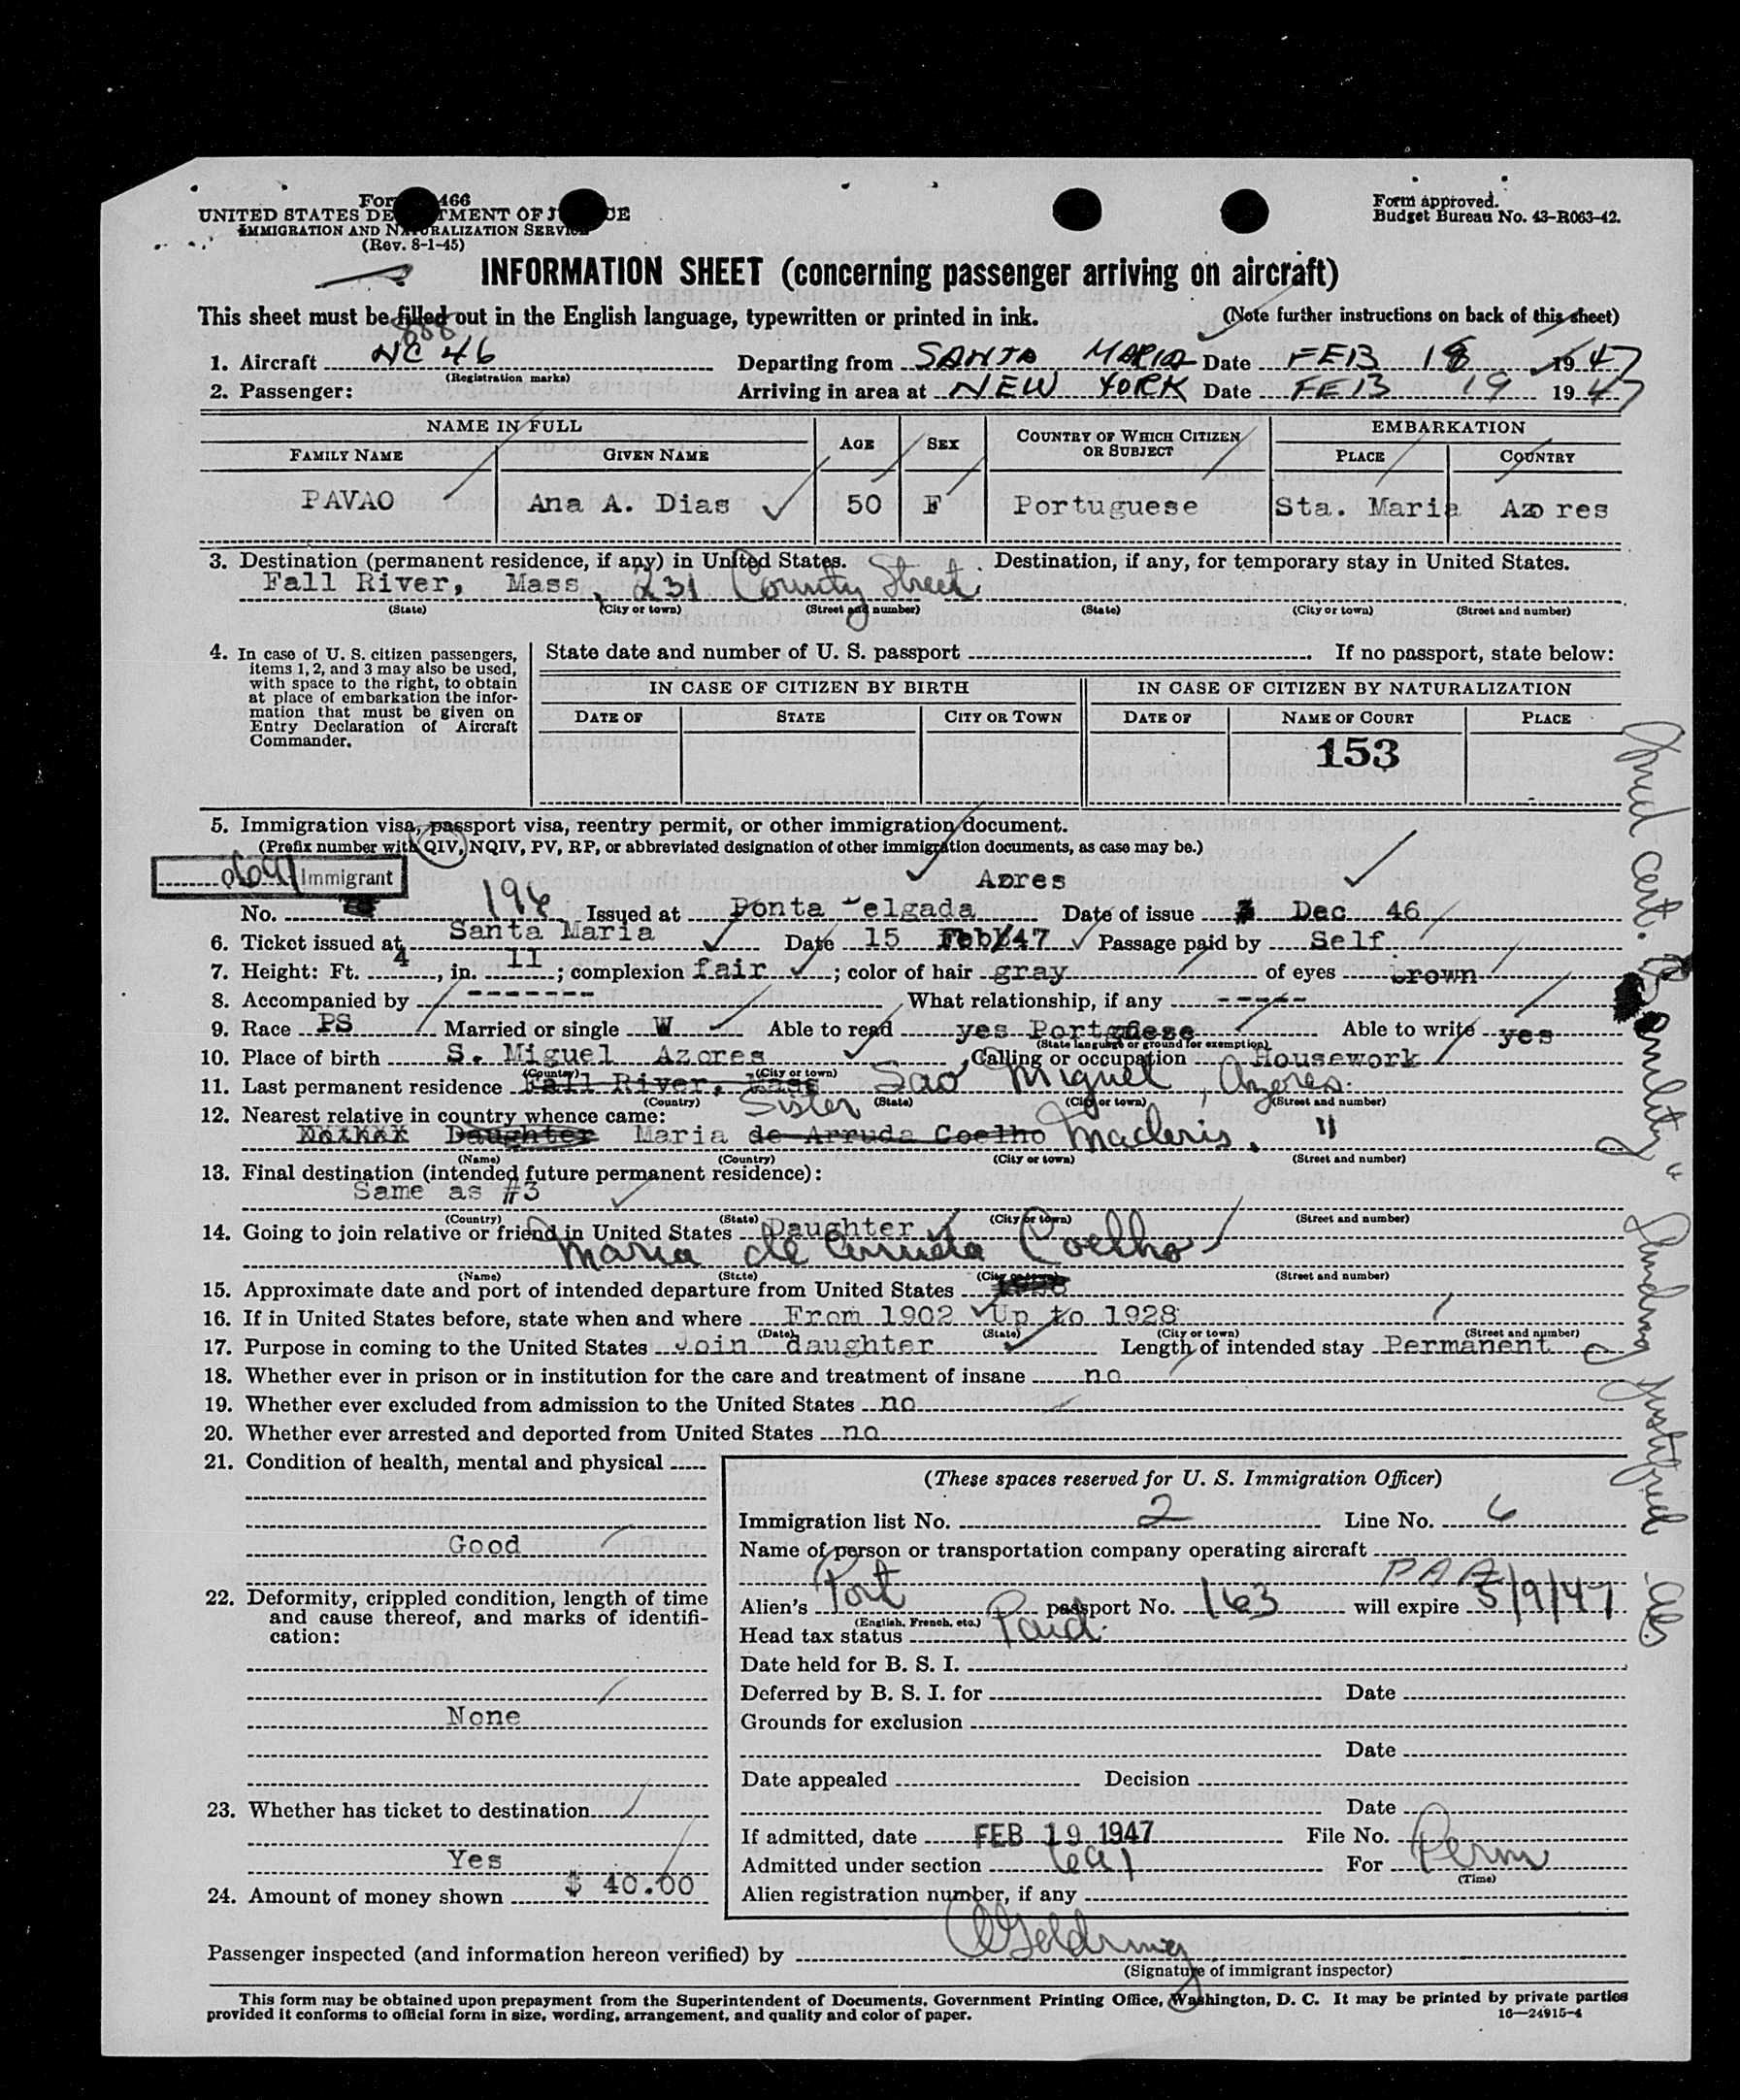 For 466
UNITED STATES DE TMENT OF J CE
IMMIGRATION AND NATURALIZATION SERVICE
(Rev. 8-1-45)
Form approved.
Budget Bureau No. 43-R063-42.
INFORMATION SHEET (concerning passenger arriving on aircraft)
This sheet must be filled out in the English language, typewritten or printed in ink. (Note further instructions on back of this sheet)
888
1. Aircraft NC 46 Departing from SANTA MARIA Date FEB 18 1947
(Registration marks)
2. Passenger: Arriving in area at NEW YORK Date FEB 19 1947
NAME IN FULL AGE SEX COUNTRY OF WHICH CITIZEN OR SUBJECT EMBARKATION
FAMILY NAME GIVEN NAME PLACE COUNTRY
PAVAO Ana A. Dias 50 F Portuguese Sta. Maria Azores
3. Destination (permanent residence, if any) in United States. Destination, if any, for temporary stay in United States.
Fall River, Mass, 231 County Street
(State) (City or town) (Street and number) (State) (City or town) (Street and number)
4. In case of U. S. citizen passengers, items 1, 2, and 3 may also be used, with space to the right, to obtain at place of embarkation the information that must be given on Entry Declaration of Aircraft Commander.
State date and number of U. S. passport If no passport, state below:
IN CASE OF CITIZEN BY BIRTH IN CASE OF CITIZEN BY NATURALIZATION
DATE OF STATE CITY OR TOWN DATE OF NAME OF COURT PLACE
153
5. Immigration visa, passport visa, reentry permit, or other immigration document.
(Prefix number with QIV, NQIV, PV, RP, or abbreviated designation of other immigration documents, as case may be.)
Immigrant
Azores
No. 196 Issued at Ponta Delgada Date of issue 3 Dec 46
6. Ticket issued at Santa Maria Date 15 Feb/47 Passage paid by Self
7. Height: Ft. 4, in. 11; complexion fair; color of hair gray of eyes brown
8. Accompanied by ------- What relationship, if any -----
9. Race PS Married or single W Able to read yes Portguese Able to write yes
(State language or ground for exemption)
10. Place of birth S. Miguel Azores Calling or occupation Housework
(Country) (City or town)
11. Last permanent residence Fall River, Mass Sao Miguel, Azores
(Country) (State) (City or town) (Street and number)
12. Nearest relative in country whence came: Sister
Daughter Maria de Arruda Coelho Maderis, "
(Name) (Country) (City or town) (Street and number)
13. Final destination (intended future permanent residence):
Same as #3
(Country) (State) (City or town) (Street and number)
14. Going to join relative or friend in United States Daughter
Maria de Arruda Coelho
(Name) (State) (City or town) (Street and number)
15. Approximate date and port of intended departure from United States
16. If in United States before, state when and where From 1902 Up to 1928
(Date) (State) (City or town) (Street and number)
17. Purpose in coming to the United States Join daughter Length of intended stay Permanent
18. Whether ever in prison or in institution for the care and treatment of insane no
19. Whether ever excluded from admission to the United States no
20. Whether ever arrested and deported from United States no
21. Condition of health, mental and physical
Good
22. Deformity, crippled condition, length of time and cause thereof, and marks of identification:
None
23. Whether has ticket to destination
Yes
24. Amount of money shown $ 40.00
(These spaces reserved for U. S. Immigration Officer)
Immigration list No. 2 Line No. 6
Name of person or transportation company operating aircraft
PAA
Alien's Port passport No. 163 will expire 5/9/47
(English, French, etc.)
Head tax status Paid
Date held for B. S. I.
Deferred by B. S. I. for Date
Grounds for exclusion
Date
Date appealed Decision
Date
If admitted, date FEB 19 1947 File No.
Admitted under section For Perm
(Time)
Alien registration number, if any
Passenger inspected (and information hereon verified) by
(Signature of immigrant inspector)
This form may be obtained upon prepayment from the Superintendent of Documents, Government Printing Office, Washington, D. C. It may be printed by private parties
provided it conforms to official form in size, wording, arrangement, and quality and color of paper.
16—24915-4
Med cert. Senility